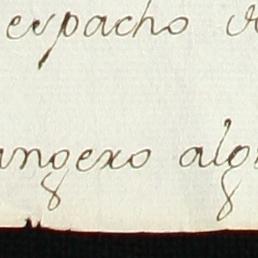 espacho
angexo alg